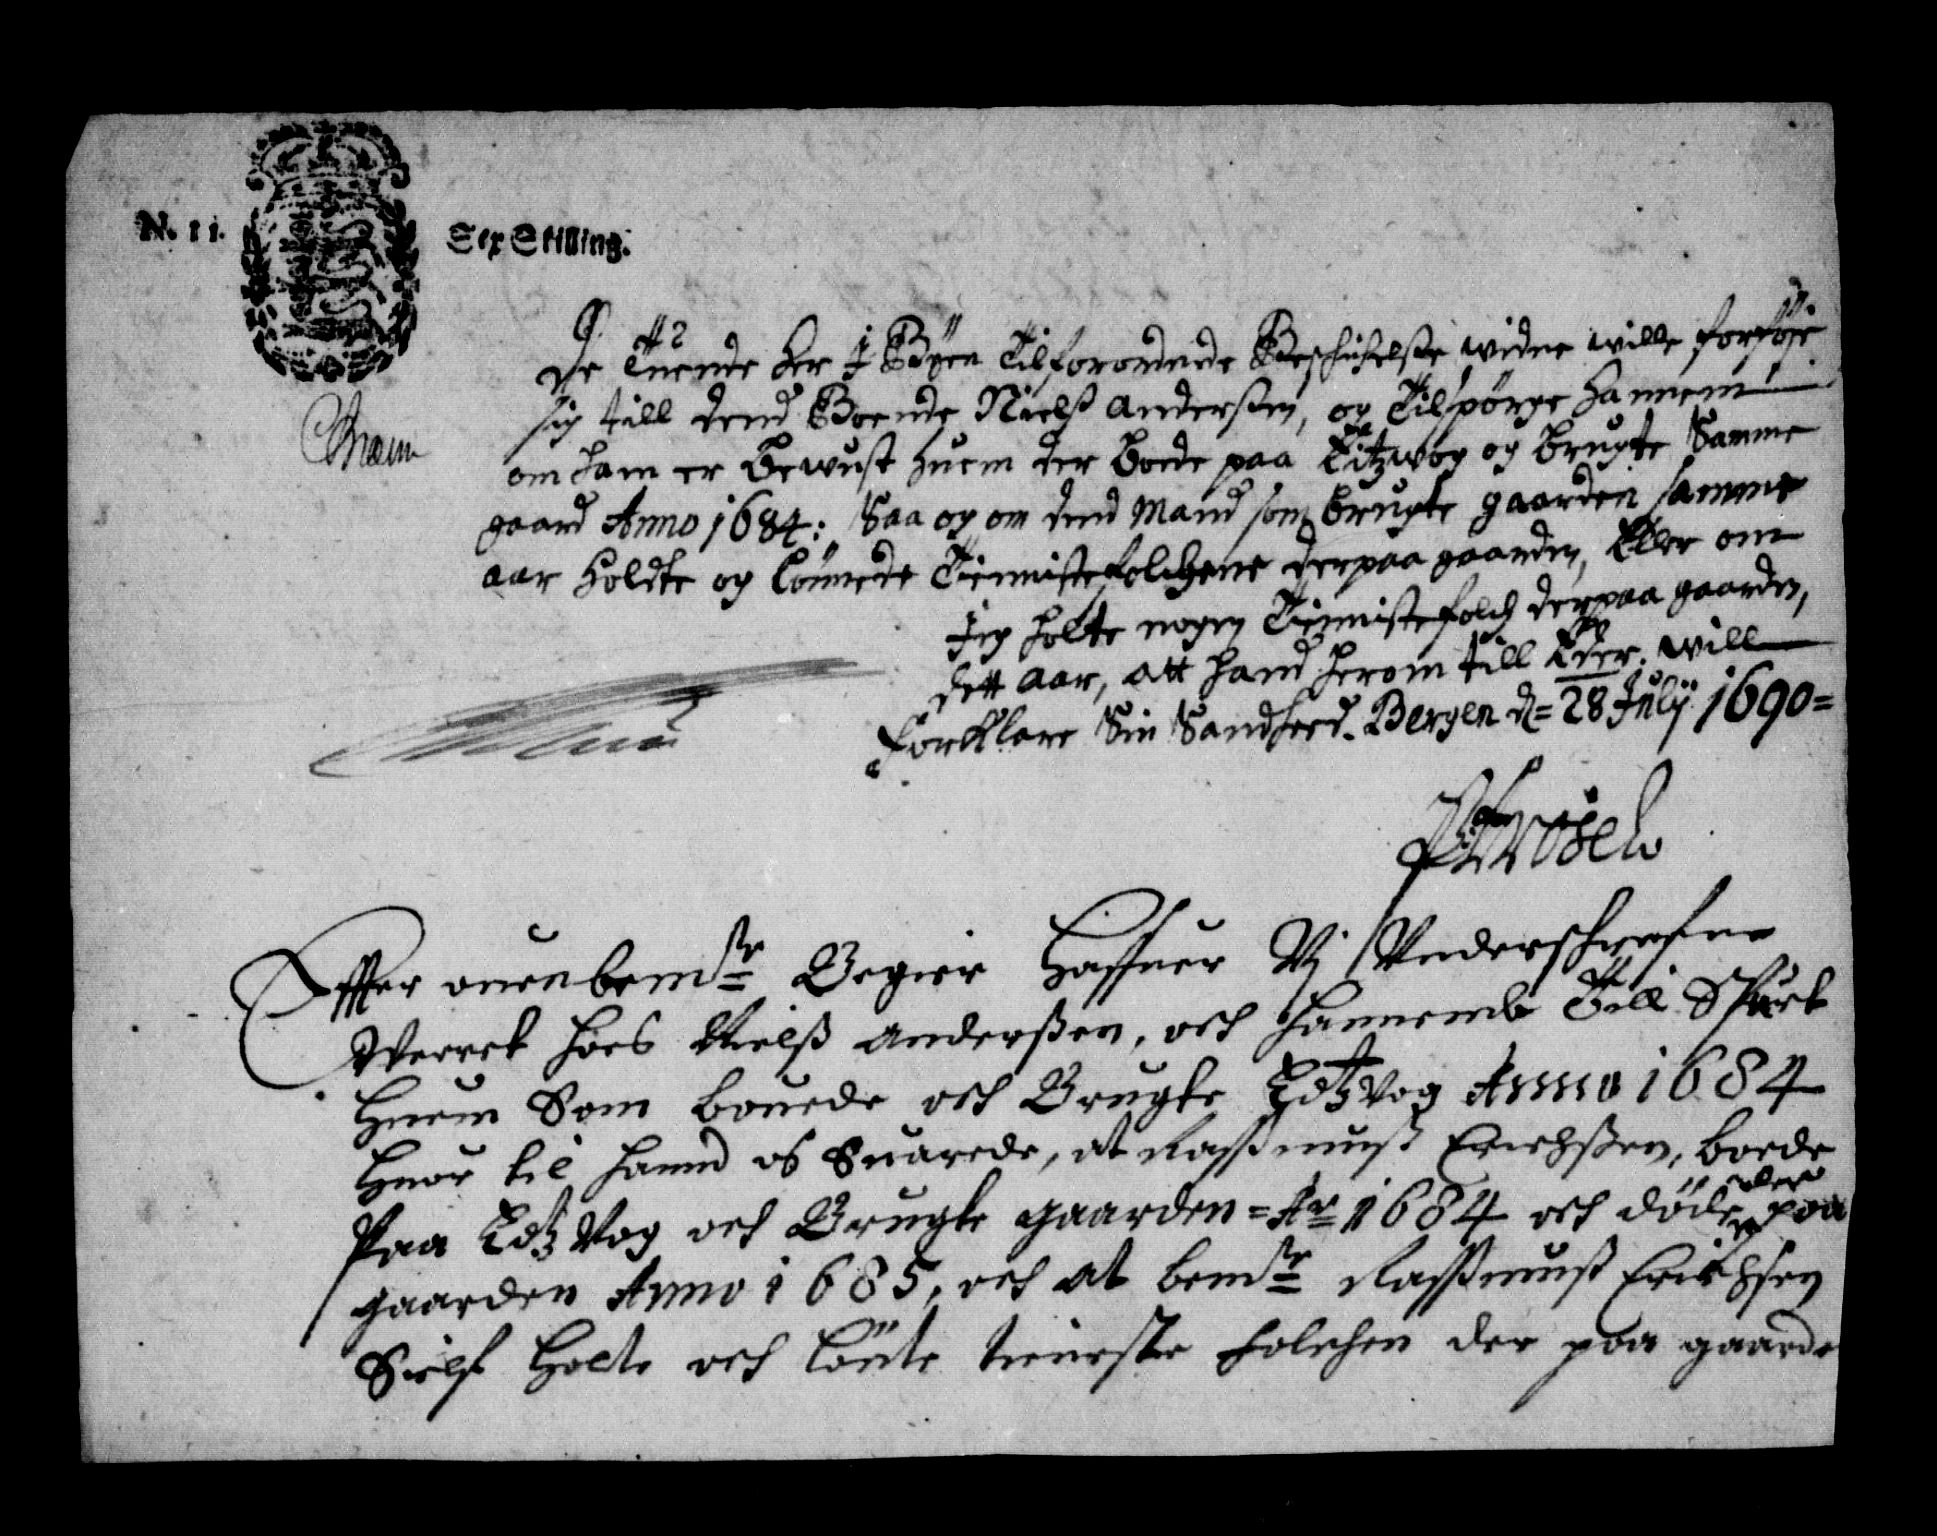 N. 11. Sex Skilling.
De Tuende her i Byen Tilforordnede Beskichelse widne wille forføje
sig till dend Boende Nielß Anderßen, og Tilspørge hannem
om ham er Bewust huem der Boede paa Titzwog og Brugte Samme
gaard Anno 1684: Saa og om dend Mand som Brugte gaarden samme
aar Holdte og Lønnede Tiennistefolchene derpaa gaarden, Eller om
Jeg holte nogen Tiennistefolch derpaa gaarden,
dett aar, att hand herom till Eder will
forklare Sin Sandhed. Bergen d= 28 July 1690=
Effter ouenbemte Begier Haffuer Vj Underschrefne
Werret hoes Nielß Anderßen, och hannemb Till Spurt
Huem Som bouede och Brugte Tidtzvog Anno 1684
Huor til hannd oß Suarede, at Raßmuß Erichßen, boede
Paa Tidtzvog och Brugte gaarden= Ao 1684 och døde der paa
gaarden Anno 1685, och at bemte Raßmuß Erichsen
Sielf Holte och Lønte tieneste folchen der paa gaarde